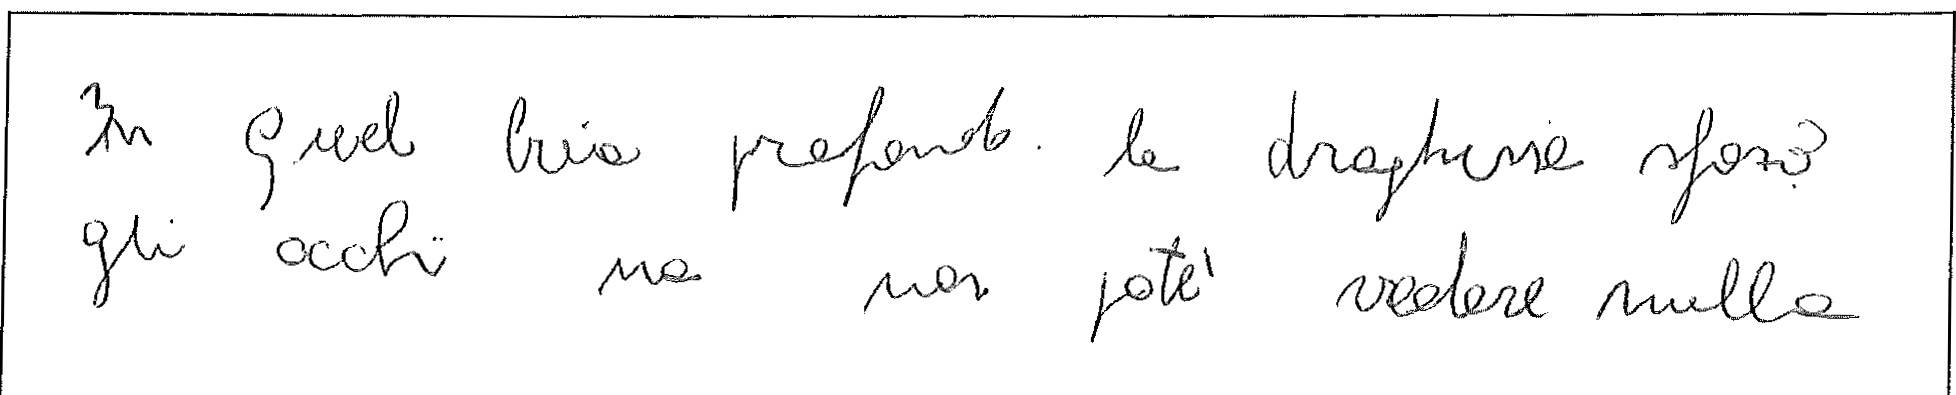 In quel buio profondo. la draghessa sforzò
gli occhi ma non poté vedere nulla